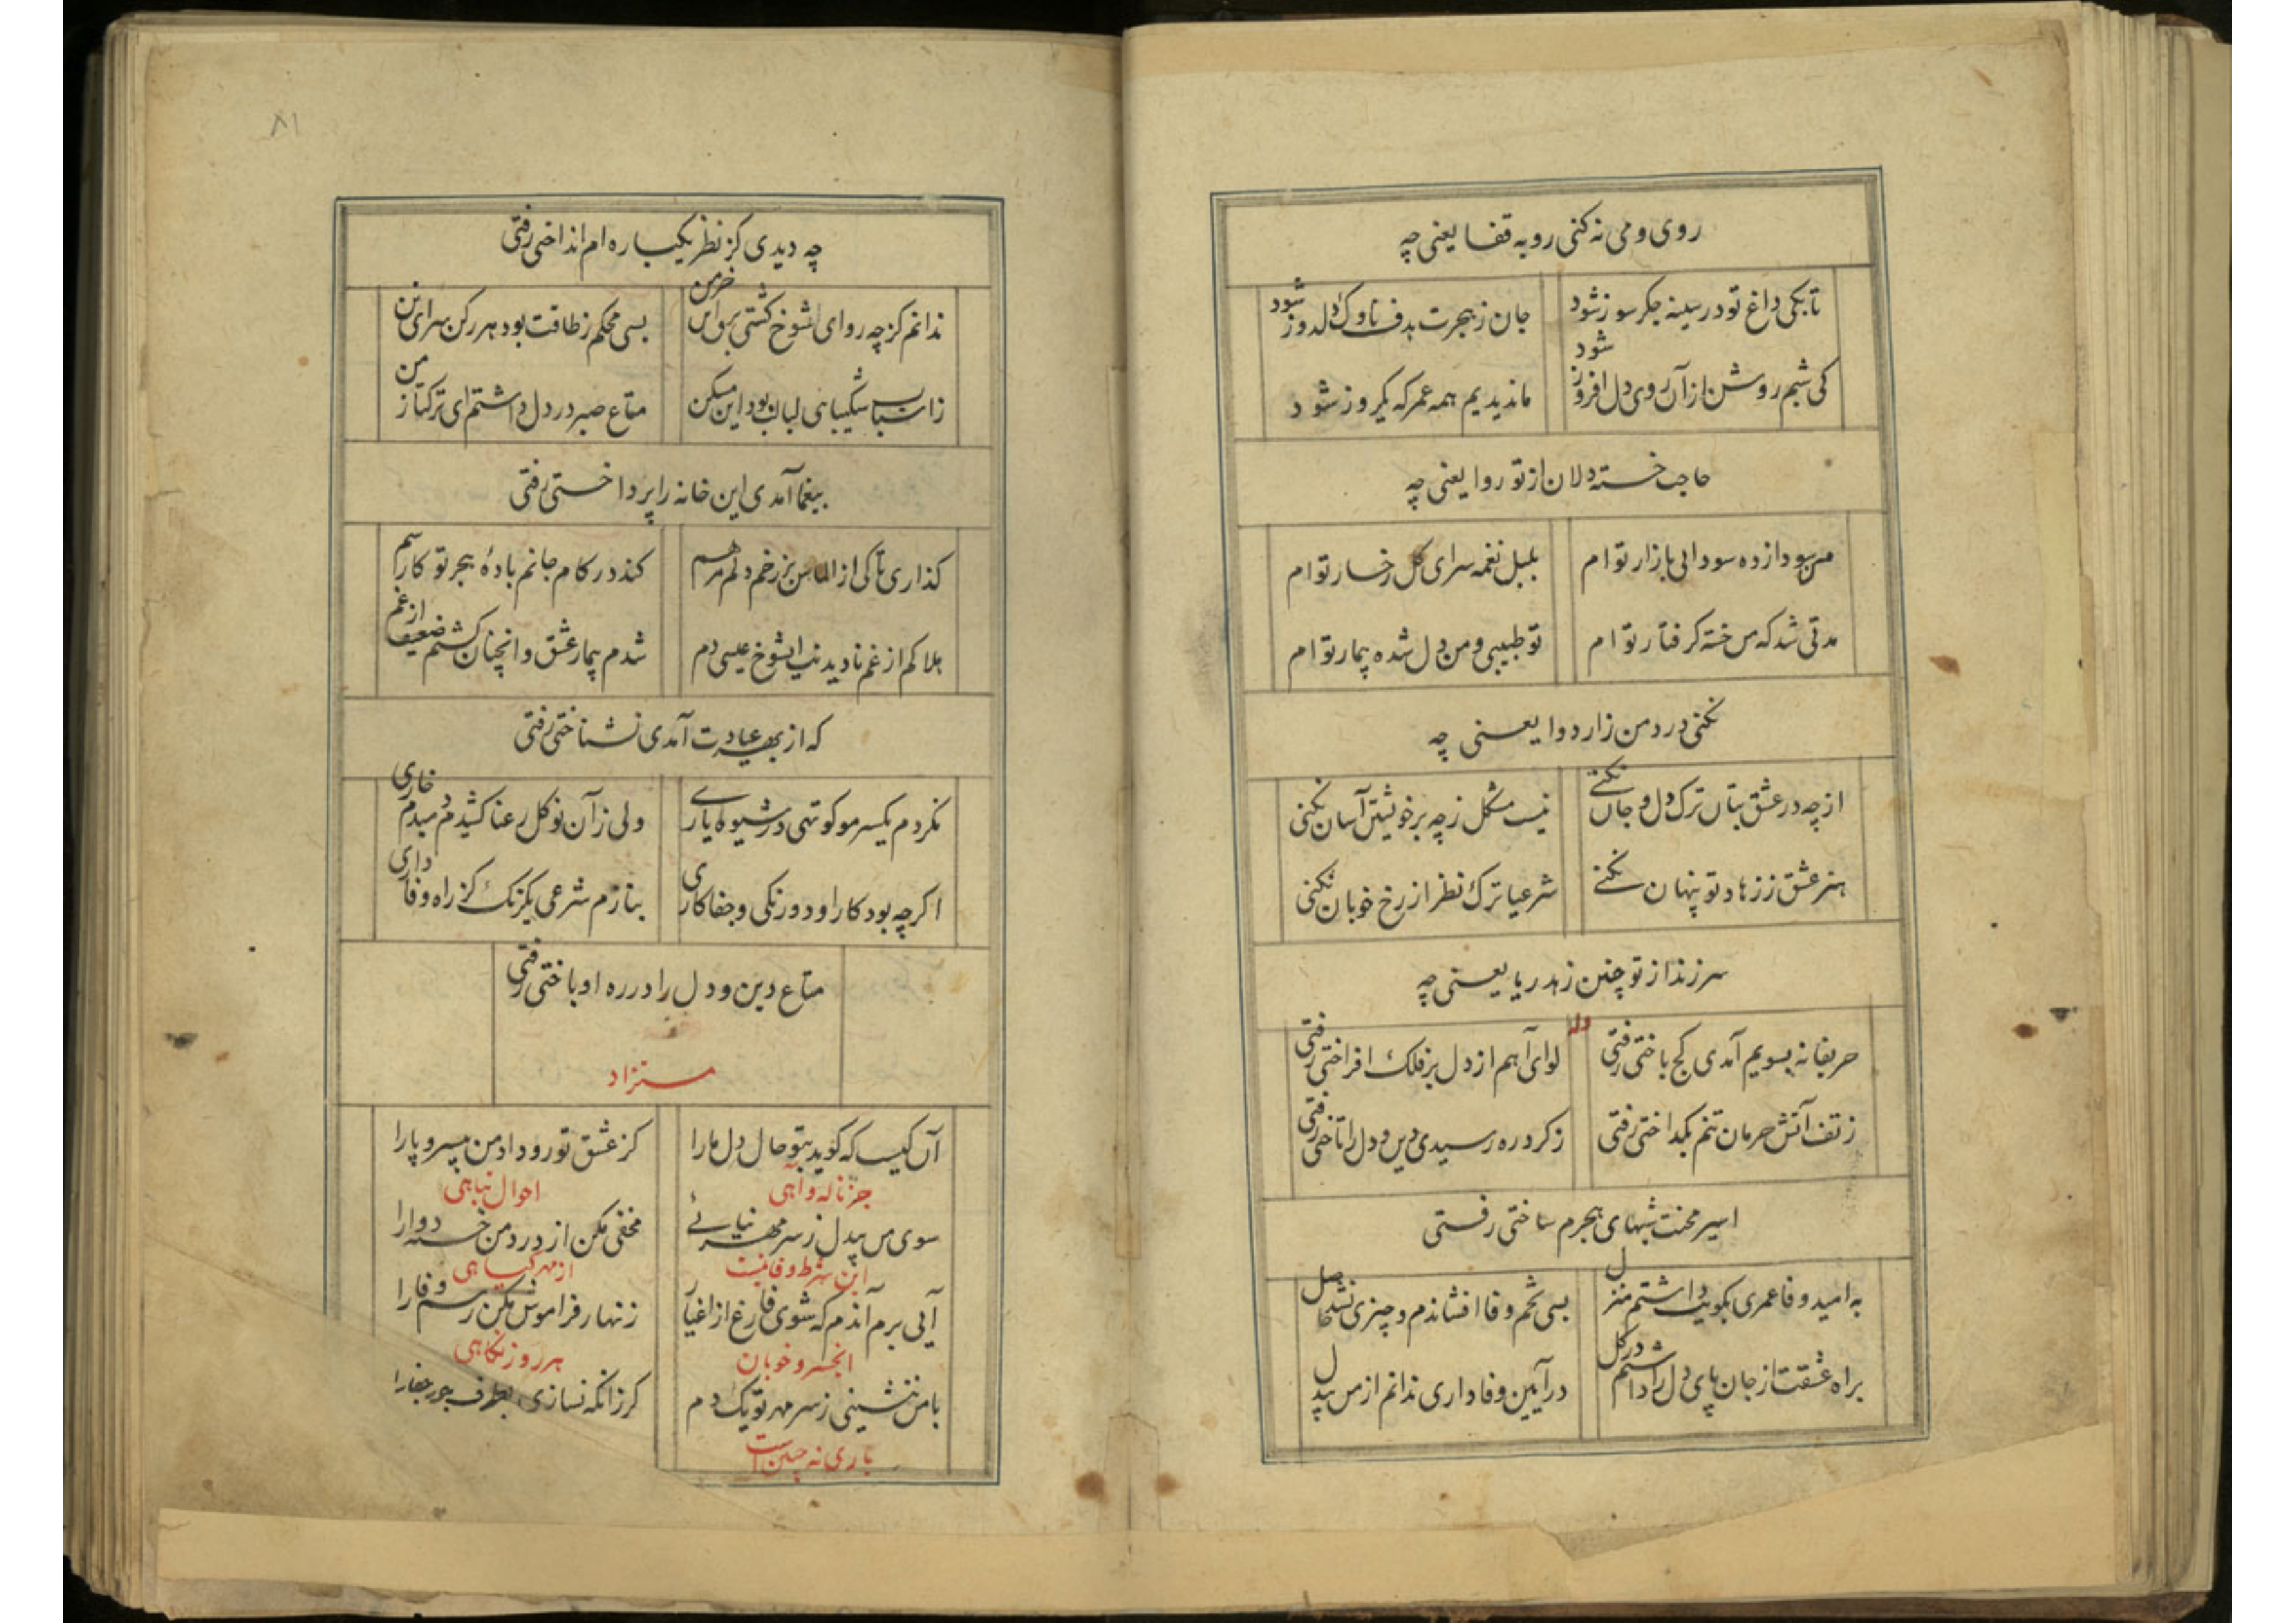 روی و می نه کنی رو به قفا یعنی چه
تا بکی داغ تو در سینه جگر سوز شود
جان ز هجرت هدف ناوک دلدوز شود
کی شبم روشن از آن روی دل افروز شود
ما ندیدیم همه عمر که یکروز شود
حاجت خسته دلان از تو روا یعنی چه
من سودازده سودایی بازار توام
بلبل نغمه سرای گل رخسار توام
مدتی شد که من خسته گرفتار توام
تو طبیبی و من دل شده بیمار توام
نکنی درد من زار دوا یعنی چه
از چه در عشق بتان ترک دل و جان نکنی
نیست مشکل ز چه بر خویشتن آسان نکنی
هنر عشق ز زهاد تو پنهان نکنی
شرعیا ترک نظر از رخ خوبان نکنی
سر زند از تو چنین زهد ریا یعنی چه
وله
حریفانه بسویم آمدی کج باختی رفتی
لوای آهم از دل بر فلک افراختی رفتی
ز تف آتش حرمان تنم بگداختی رفتی
ز گرد ره رسیدی دین و دل را تاختی رفتی
اسیر محنت شبهای هجرم ساختی رفتی
به امید وفا عمری بکویت داشتم منزل
بسی تخم وفا افشاندم و چیزی نشد حاصل
براه عشقت از جان پای دل را داشتم در گل
در آیین وفاداری ندانم از من بیدل
چه دیدی کز نظر یکباره ام انداختی رفتی
ندانم کز چه رو ای شوخ گشتی برق این خرمن
بسی محکم ز طاقت بود هر رکن سرای تن
ز اسباب شکیبایی لبالب بود این مسکن
متاع صبر در دل داشتم ای ترکتاز من
بیغما آمدی این خانه را پرداختی رفتی
گذاری تا کی از الماس بر زخم دلم مرهم
کند در کام جانم بادهٔ هجر تو کار سم
هلاکم از غم نادیدنت ای شوخ عیسی دم
شدم بیمار عشق و انچنان گشتم ضعیف از غم
که از بهر عیادت آمدی نشناختی رفتی
نکردم یکسر مو کوتهی در شیوه یاری
ولی زان نوگل رعنا کشیدم دمبدم خاری
اگرچه بود کار او دورنگی و جفاکاری
بنازم شرعی یکرنگ کز راه وفاداری
متاع دین و دل را در ره او باختی رفتی
مستزاد
آن کیست که گوید بتو حال دل ما را
کز عشق تو رو داد من بیسر و پا را
جز ناله و آهی
احوال تباهی
سوی من بیدل ز سر مهر نیائی
مخفی مکن از درد من خسته دوا را
این شرط وفا نیست
از مهر گیاهی
آیی برم آندم که شوی فارغ از اغیار
زنهار فراموش مکن رسم وفا را
ای خسرو خوبان
هر روز نگاهی
با من ننشینی ز سر مهر تو یک دم
گر زانکه نسازی بطرف جور جفا را
باری نه چنین است